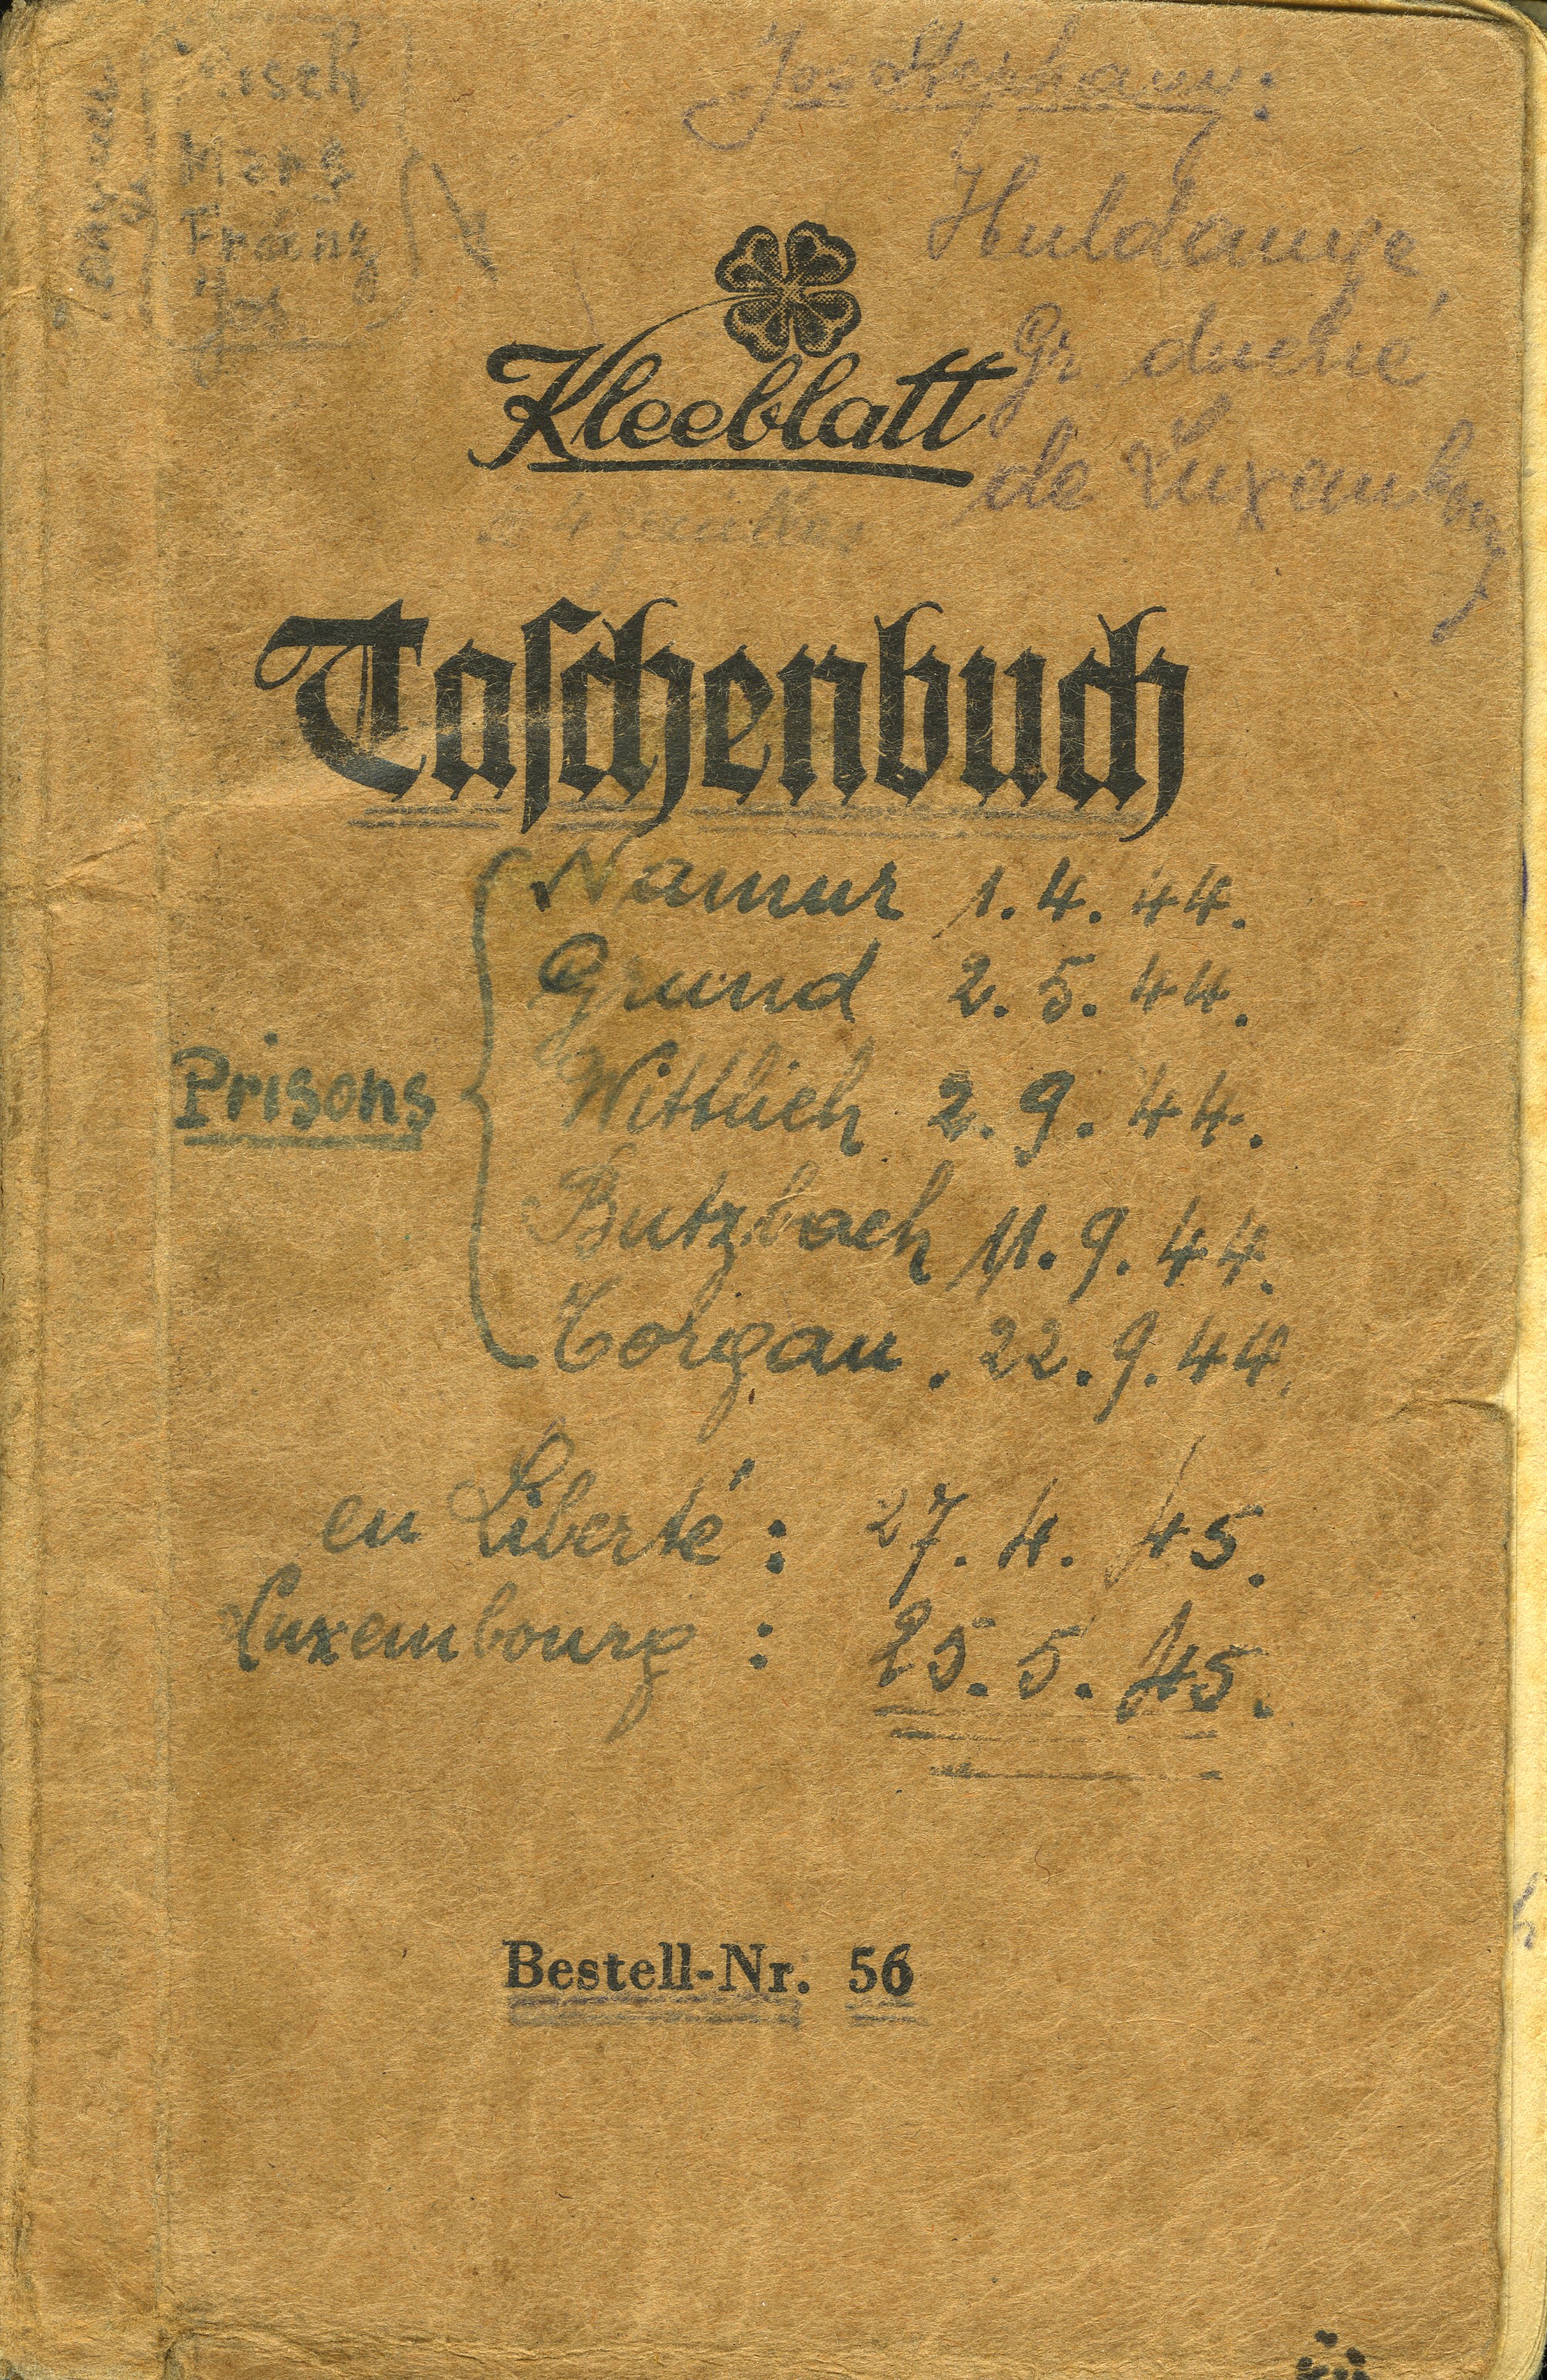 Jos Stephany:
Huldange
Gr. duché
de Luxembourg
Hans
Franz
Jos.
Kleeblatt
Taschenbuch
Prisons
Namur 1.4.44.
Grund 2.5.44.
Wittlich 2.9.44.
Butzbach 11.9.44.
Torgau. 22.9.44.
en Liberté: 27.4.45.
Luxembourg: 25.5.45.
Bestell-Nr. 56